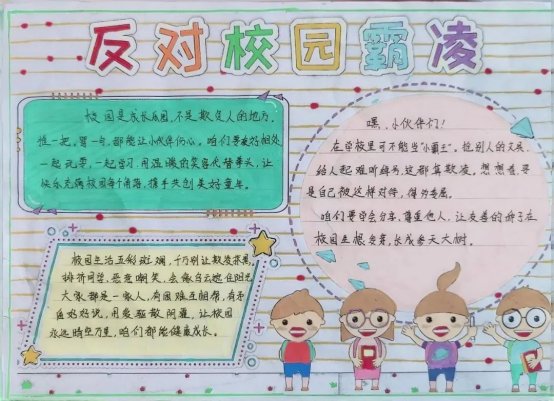 反对校园霸凌
校园是成长乐园,不是欺负人的地方。
推一把,骂一句,都能让小伙伴伤心。咱们要友好相处,
一起玩耍,一起学习,用温暖的笑容代替拳头,让
快乐充满校园每个角落,携手共创美好童年。
嘿,小伙伴们!
在学校里可不能当"小霸王"。抢别人的文具、
给人起难听绰号,这都算欺凌。想想看,要
是自己被这样对待,得多委屈。
咱们要学会分享、尊重他人,让友善的种子在
校园生根发芽,长成参天大树。
校园生活五彩斑斓,千万别让欺凌
排挤同学、恶意嘲笑,会像乌云遮住阳光
大家都是一家人,有困难互相帮,有矛
盾好好说,用爱驱散阴霾,让校园
永远晴空万里,咱们都能健康成长。